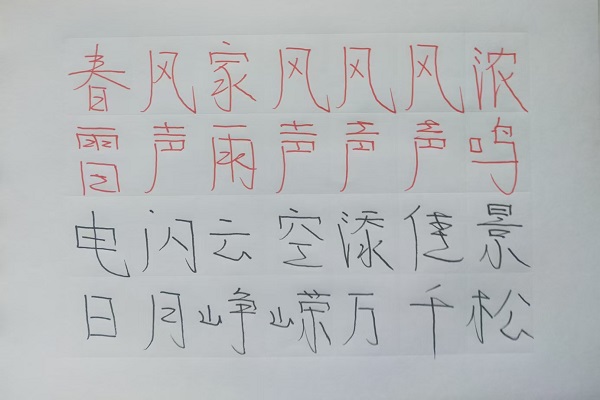 春风家风风风浓
雷声雨声声声鸣
电闪云空添佳景
日月峥嵘万千松